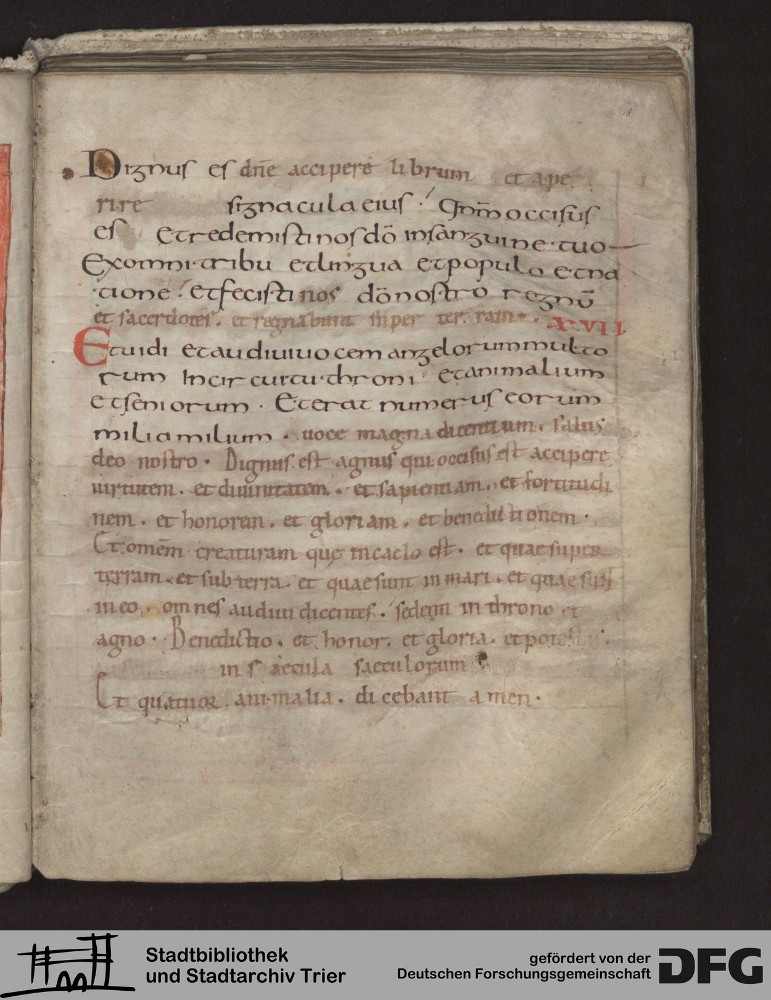 Dignus es dñe accipere librum et ape
rire signacula eius. Qnm̄ occisus
es et redemisti nos dō in sanguine tuo
Ex omni tribu et lingua et populo et na
tione. et fecisti nos dō nostro regnū
et sacerdotes. et regnabunt super ter ram. XVII
Et uidi et audiui uocem angelorum multo
rum In circuitu throni et animalium
et seniorum. Et erat numerus eorum
milia milium. uoce magna dicentium. salus
deo nostro. Dignus est agnus qui occisus est accipere
uirtutem. et diuinitatem. et sapientiam. et fortitudi
nem. et honorem. et gloriam. et benedictionem.
Et omēm creaturam que in caelo est. et quae super
terram. et sub terra. et quae sunt in mari. et quae sunt
in eo. omnes audiui dicentes. sedenti in throno et
agno. Benedictio. et honor. et gloria. et potestas.
in saecula saeculorum
Et quatuor animalia. dicebant amen.
Stadtbibliothek
und Stadtarchiv Trier
gefördert von der
Deutschen Forschungsgemeinschaft
DFG